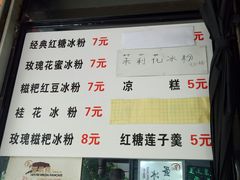 经典红糖冰粉 7元
玫瑰花蜜冰粉 7元
糍粑红豆冰粉 7元
桂花冰粉 7元
玫瑰糍粑冰粉 8元
茉莉花冰粉
凉糕 5元
红糖莲子羹 5元